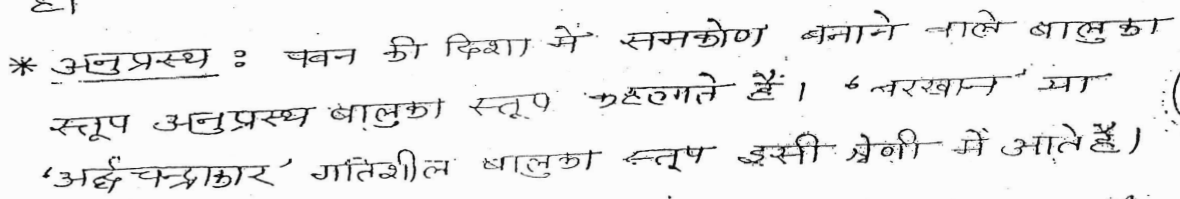 है।
* अनुप्रस्थ : पवन की दिशा में समकोण बनाने वाले बालुका
स्तूप अनुप्रस्थ बालुका स्तूप कहलाते हैं। 'बरखान' या
'अर्द्धचन्द्राकार' गतिशील बालुका स्तूप इसी श्रेणी में आते है।